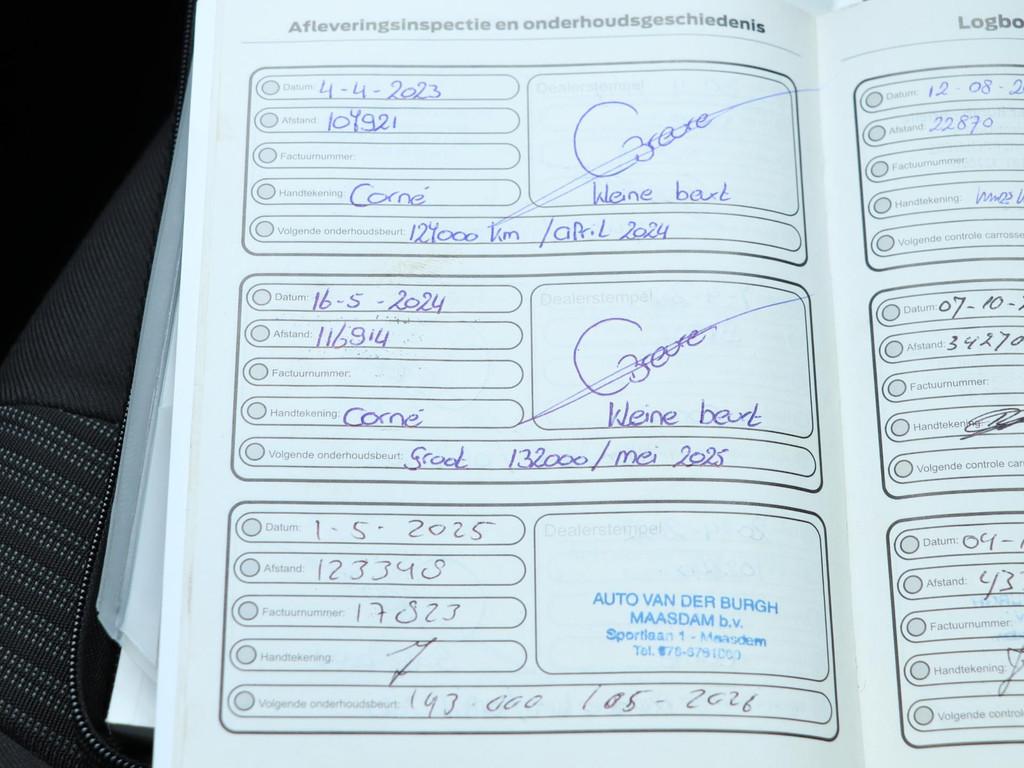 Afleveringsinspectie en onderhoudsgeschiedenis
Datum: 4-4-2023
Dealerstempel
Afstand: 107921
Factuurnummer:
Handtekening: Corné
Kleine beurt
Volgende onderhoudsbeurt: 127000 km /april 2024
Datum: 16-5-2024
Dealerstempel
Afstand: 116914
Factuurnummer:
Handtekening: Corné
Kleine beurt
Volgende onderhoudsbeurt: Groot 132000/mei 2025
Datum: 1-5-2025
Dealerstempel
Afstand: 123348
Factuurnummer: 17823
AUTO VAN DER BURGH
MAASDAM b.v.
Sportlaan 1 - Maasdam
Tel.
Handtekening:
Volgende onderhoudsbeurt: 143.000 /05-2026
Datum: 12-08-
Afstand: 22870
Factuurnummer:
Handtekening:
Volgende controle
Datum: 07-10-
Afstand: 34270
Factuurnummer:
Handtekening:
Volgende controle
Datum: 04-
Afstand: 43
Factuurnummer:
Handtekening:
Volgende